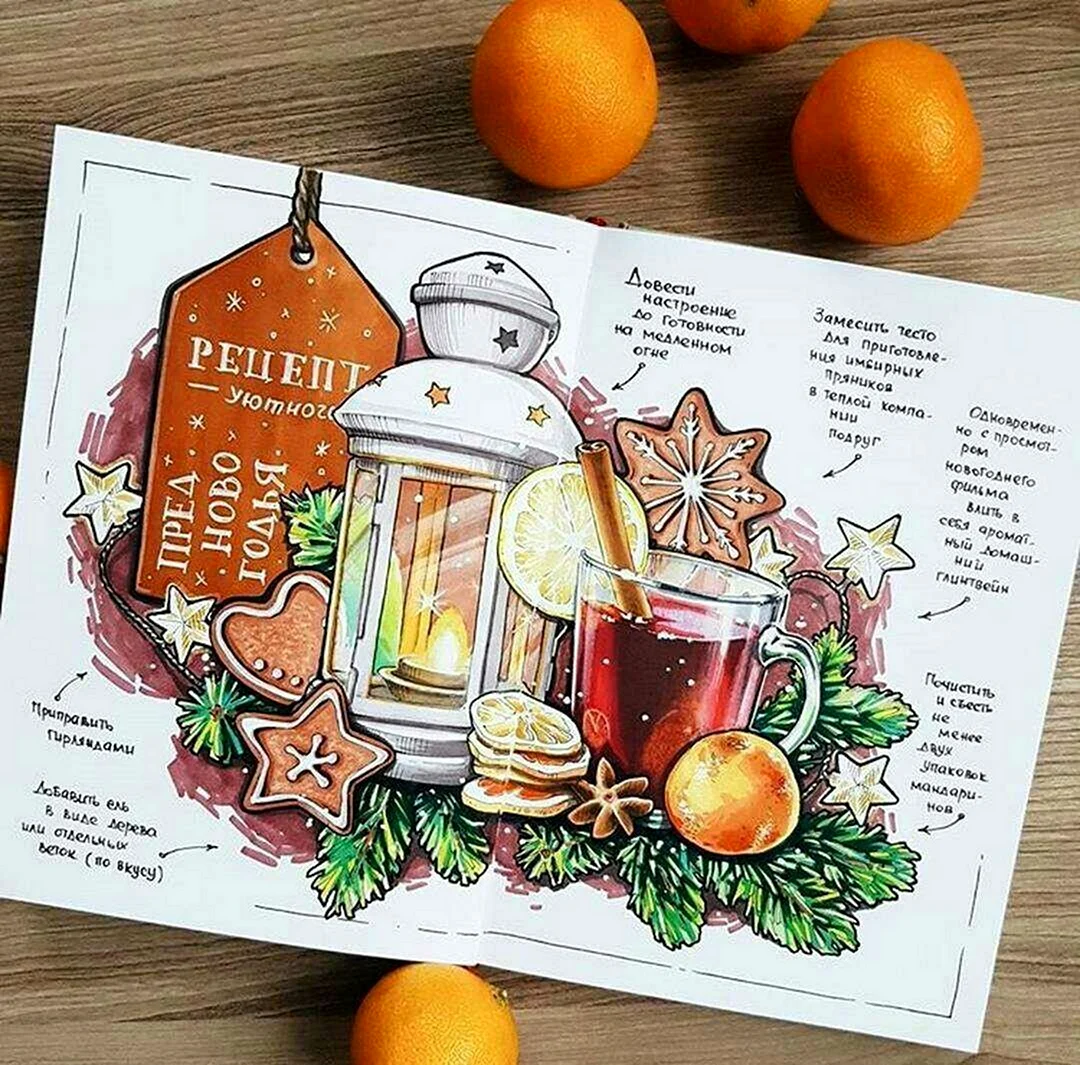 РЕЦЕПТ
уютного
ПРЕД
НОВО
ГОДЬЯ
Довести
настроение
до готовности
на медленном
огне
Замесить тесто
для приготовле-
ния имбирных
пряников
в теплой компа-
нии
подруг
Одновремен-
но с просмот-
ром
новогоднего
фильма
влить в
себя аромат-
ный домаш-
ний
глинтвейн
Почистить
и съесть
не
менее
двух
упаковок
мандари-
нов
Приправить
гирляндами
Добавить ель
в виде дерева
или отдельных
веток (по вкусу)